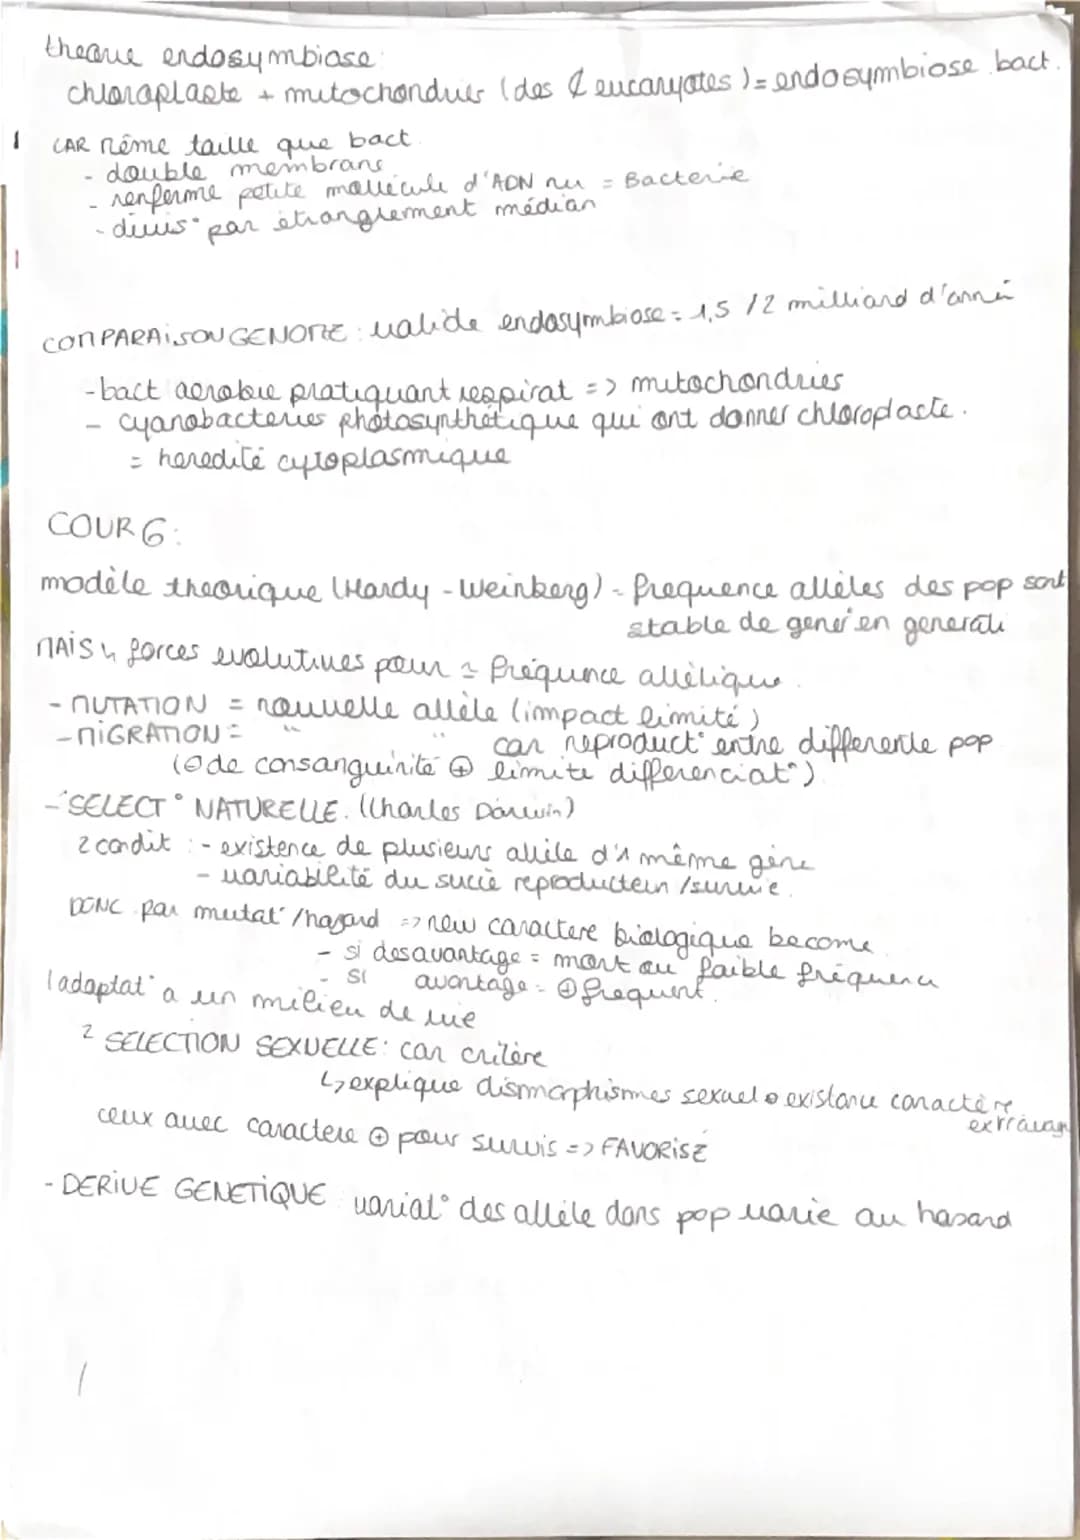 theorie endosymbiose:
chloroplaste + mitochondries (des ¢ eucaryotes) = endosymbiose bact.
CAR même taille que bact.
- double membrans
- renferme petite mollécule d'ADN nu = Bacterie
- divis° par étranglement médian
COMPARAISON GENOME : valide endosymbiose = 1,5 / 2 milliard d'anné
- bact aerobie pratiquant respirat => mitochondries
- cyanobacteries photosynthétique qui ont donner chloroplaste.
= heredité cytoplasmique
COUR 6:
modèle theorique (Hardy - Weinberg) - frequence allèles des pop sont
stable de gener en generati
MAIS 4 forces evolutives pour ≈ fréquence allèlique.
- MUTATION = nouvelle allèle (impact limité)
- MIGRATION = " " car reproduct° entre differente pop
(⊖ de consanguinité ⊕ limite differenciat°)
- SELECT° NATURELLE. (Charles Darwin)
2 condit : - existence de plusieurs allèle d'1 même gène
- variabilité du succè reproducteur / survie.
DONC par mutat° / hasard => new caractere biologique become
- si desavantage = mort ou faible fréquence
- si avantage = ⊕ frequent.
1 adaptat° a un milieu de vie
2 SELECTION SEXUELLE: car critère
↳ explique dismorphismes sexuel existance caractère
extravag
ceux avec caractere ⊕ pour survis => FAVORISÉ
- DERIVE GENETIQUE variat° des allèle dans pop varie au hasard